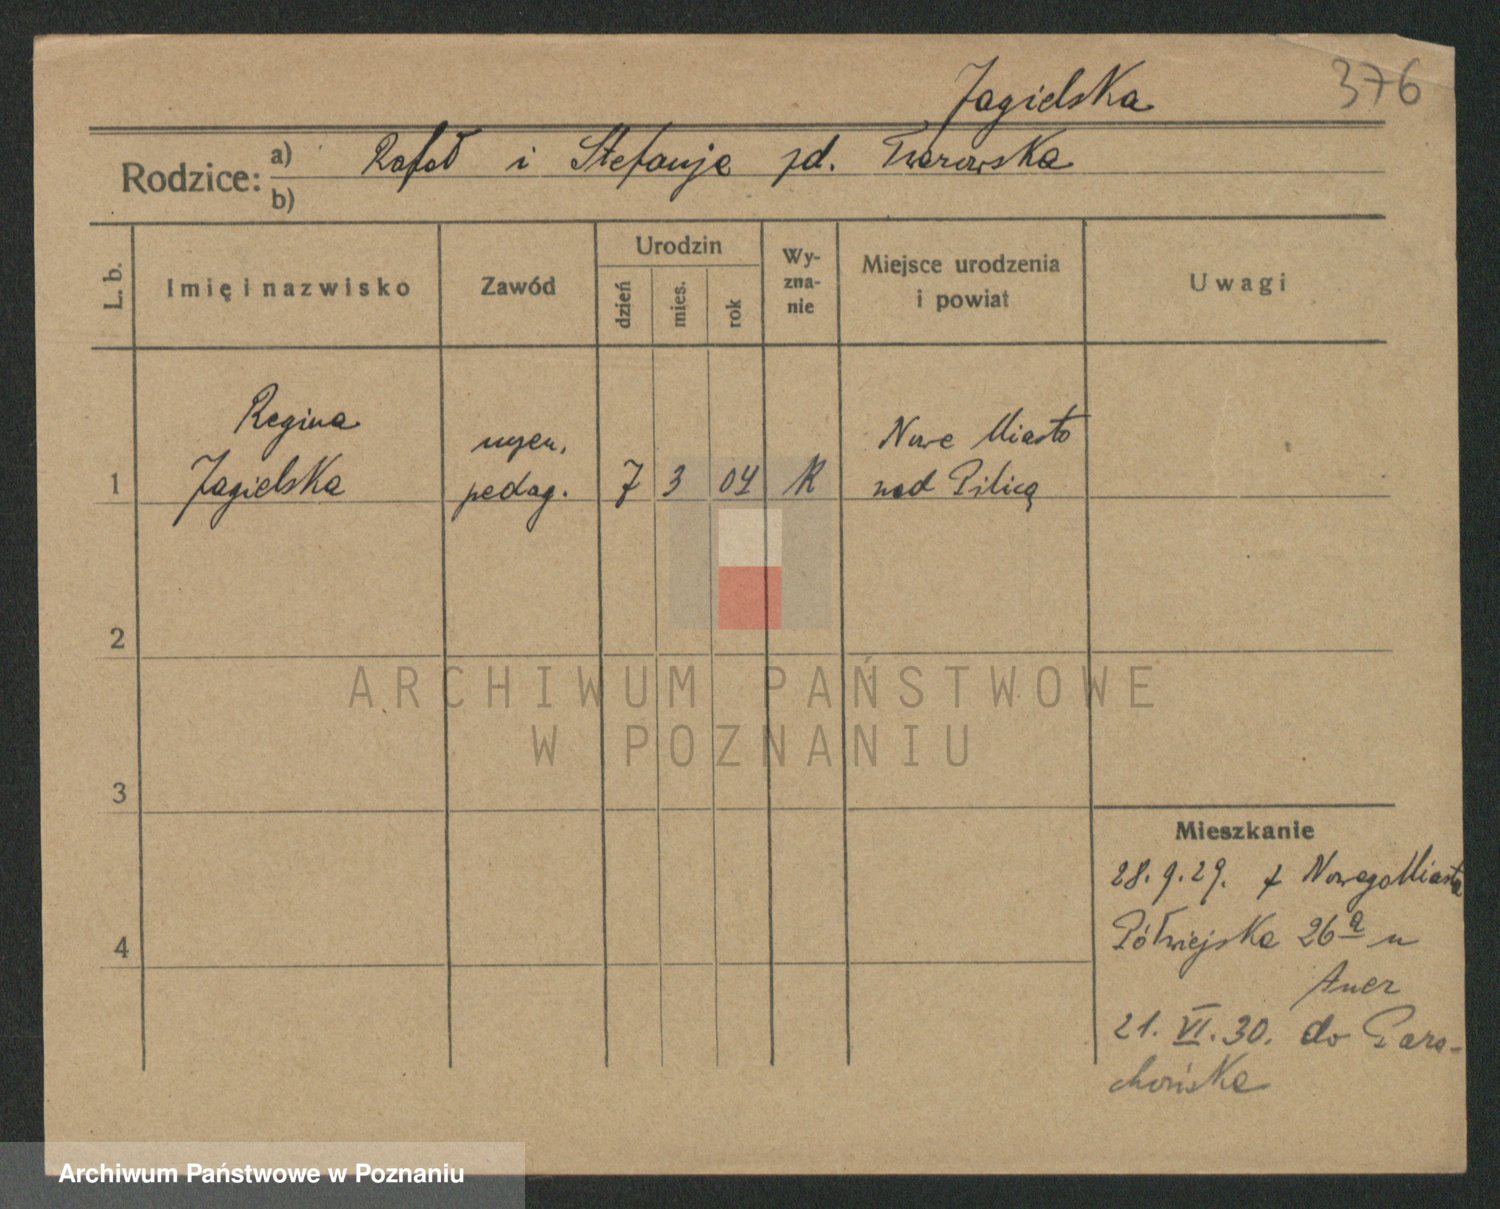 Jagielska
376
Rodzice: a) Rafał i Stefanja zd. Twarowska
b)
L. b. Imię i nazwisko Zawód Urodzin dzień mies. rok Wyzna-nie Miejsce urodzenia i powiat Uwagi
Regina
Nowe Miasto
1 Jagielska pedag. 7 3 04 RK nad Pilicą
2
ARCHIWUM PAŃSTWOWE
W POZNANIU
3
Mieszkanie
28.9.29. z Nowego Miasta
4
Półwiejska 26a u
Auer
21. VI. 30. do
Archiwum Państwowe w Poznaniu